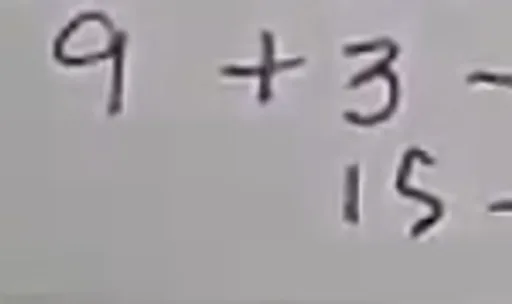 9 + 3 -
15 -